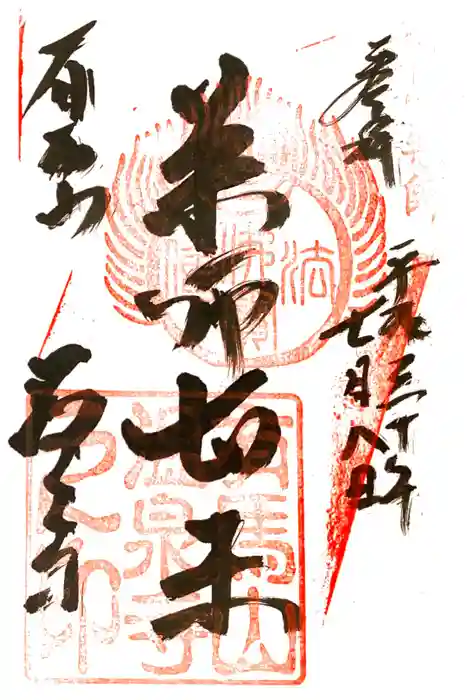 奉拝
平成三十年
七月八日
薬師如来
有馬山
温泉寺
有馬山
温泉寺
之印